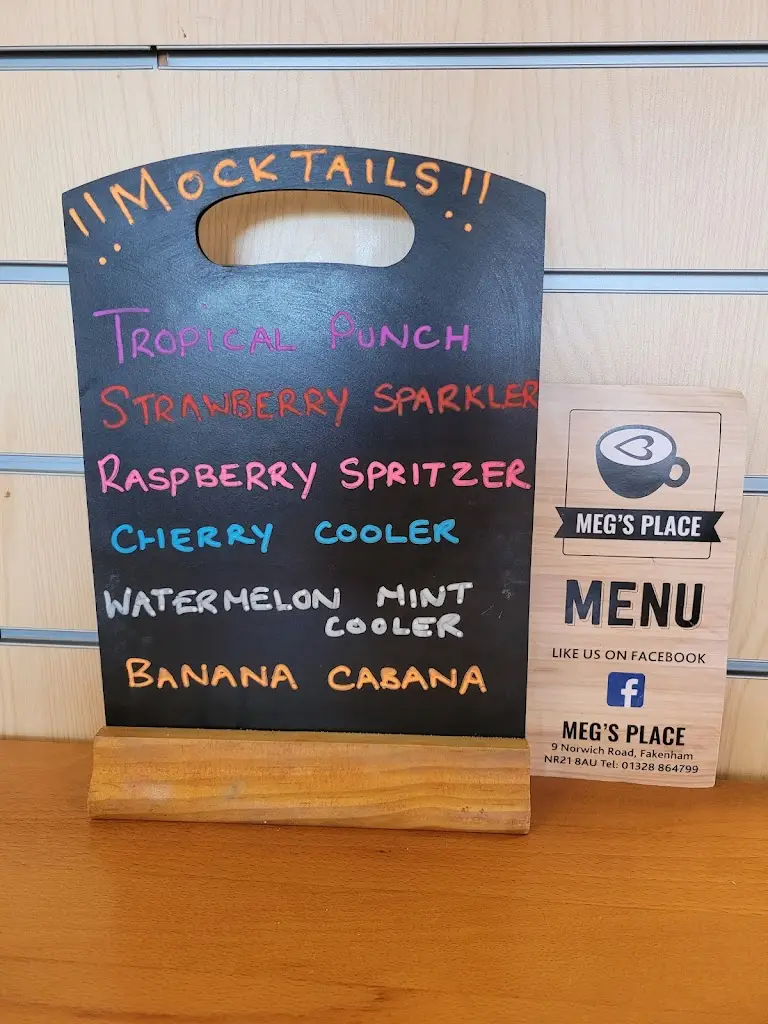 !!MOCKTAILS!!
TROPICAL PUNCH
STRAWBERRY SPARKLER
RASPBERRY SPRITZER
CHERRY COOLER
WATERMELON MINT
COOLER
BANANA CABANA
MEG'S PLACE
MENU
LIKE US ON FACEBOOK
f
MEG'S PLACE
9 Norwich Road, Fakenham
NR21 8AU Tel: 01328 864799